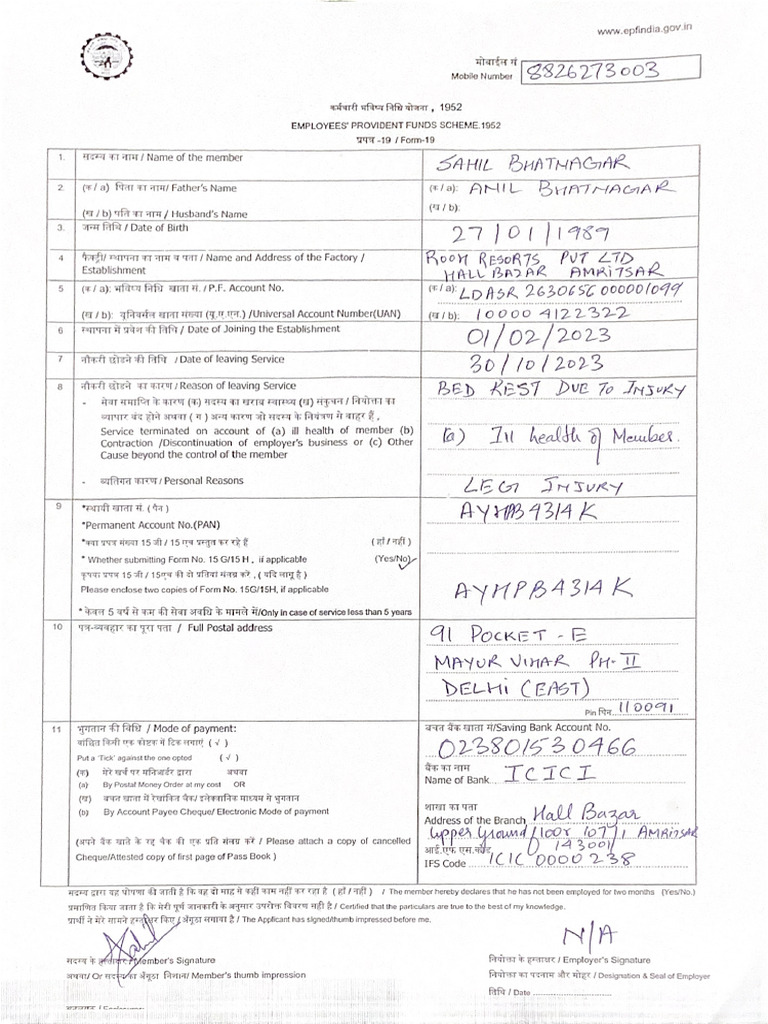 www.epfindia.gov.in
मोबाईल सं
Mobile Number 8826273003
कर्मचारी भविष्य निधि योजना, 1952
EMPLOYEES' PROVIDENT FUNDS SCHEME.1952
प्रपत्र -19 / Form-19
1. सदस्य का नाम / Name of the member SAHIL BHATNAGAR
2. (क / a) पिता का नाम/ Father's Name (क / a): ANIL BHATNAGAR
(ख / b) पति का नाम / Husband's Name (ख / b):
3. जन्म तिथि / Date of Birth 27/01/1989
4 फैक्ट्री/ स्थापना का नाम व पता / Name and Address of the Factory / ROOM RESORTS PVT LTD
Establishment HALL BAZAR AMRITSAR
5 (क / a): भविष्य निधि खाता सं. / P.F. Account No. (क / a): LDASR 2630656 000001099
(ख / b): यूनिवर्सल खाता संख्या (यू.ए.एन.) /Universal Account Number(UAN) (ख / b): 10000 4122322
6 स्थापना में प्रवेश की तिथि / Date of Joining the Establishment 01/02/2023
7 नौकरी छोडने की तिथि / Date of leaving Service 30/10/2023
8 नौकरी छोडने का कारण / Reason of leaving Service BED REST DUE TO INJURY
- सेवा समाप्ति के कारण (क) सदस्य का खराब स्वास्थ्य (ख) संकुचन / नियोक्ता का
व्यापार बंद होने अथवा ( ग ) अन्य कारण जो सदस्य के नियंत्रण से बाहर हैं ,
Service terminated on account of (a) ill health of member (b) (a) Ill health of Member.
Contraction /Discontinuation of employer's business or (c) Other
Cause beyond the control of the member
- व्यतिगन कारण / Personal Reasons LEG INJURY
9 *स्थायी खाता सं. ( पैन ) AYMPB4314K
*Permanent Account No.(PAN)
*क्या प्रपत्र संख्या 15 जी / 15 एच प्रस्तुत कर रहे हैं ( हाँ / नहीं )
* Whether submitting Form No. 15 G/15 H , if applicable (Yes/No)
कृपया प्रपत्र 15 जी / 15एच की दो प्रतियां संलग्न करें , ( यदि लागू है )
Please enclose two copies of Form No. 15G/15H, if applicable AYMPB4314K
* केवल 5 वर्ष से कम की सेवा अवधि के मामले में/Only in case of service less than 5 years
10 पत्र-व्यवहार का पूरा पता / Full Postal address 91 POCKET - E
MAYUR VIHAR PH-II
DELHI (EAST)
Pin पिन. 110091
11 भुगतान की विधि / Mode of payment: बचत बैंक खाता सं/Saving Bank Account No.
वांछित किसी एक कोष्टक में टिक लगाएं ( √ ) 023801530466
Put a 'Tick' against the one opted ( √ )
(क) मेरे खर्च पर मनिआर्डर द्वारा अथवा बैंक का नाम
(a) By Postal Money Order at my cost OR Name of Bank ICICI
(ख) बचत खाता में रेखांकित चैक/ इलेक्ट्रानिक माध्यम से भुगतान
(b) By Account Payee Cheque/ Electronic Mode of payment
शाखा का पता
Address of the Branch Hall Bazar
Upper Ground floor 107/1 AMRITSAR
(अपने बैंक खाते के रद्द चैक की एक प्रति संलग्न करें / Please attach a copy of cancelled आई.एफ एस.कोड 143001
Cheque/Attested copy of first page of Pass Book ) IFS Code ICIC 0000238
सदस्य द्वारा यह घोषणा की जाती है कि वह दो माह से कहीं काम नहीं कर रहा है ( हाँ / नहीं ) / The member hereby declares that he has not been employed for two months (Yes/No.)
प्रमाणित किया जाता है कि मेरी पूर्ण जानकारी के अनुसार उपरोक्त विवरण सही है / Certified that the particulars are true to the best of my knowledge.
प्रार्थी ने मेरे सामने हस्ताक्षर किए / अँगूठा लगाया है / The Applicant has signed/thumb impressed before me.
Sahil N/A
सदस्य के हस्ताक्षर /Member's Signature नियोक्ता के हस्ताक्षर / Employer's Signature
अथवा/ Or सदस्य का अँगूठा निशान/ Member's thumb impression नियोक्ता का पदनाम और मोहर / Designation & Seal of Employer
तिथि / Date